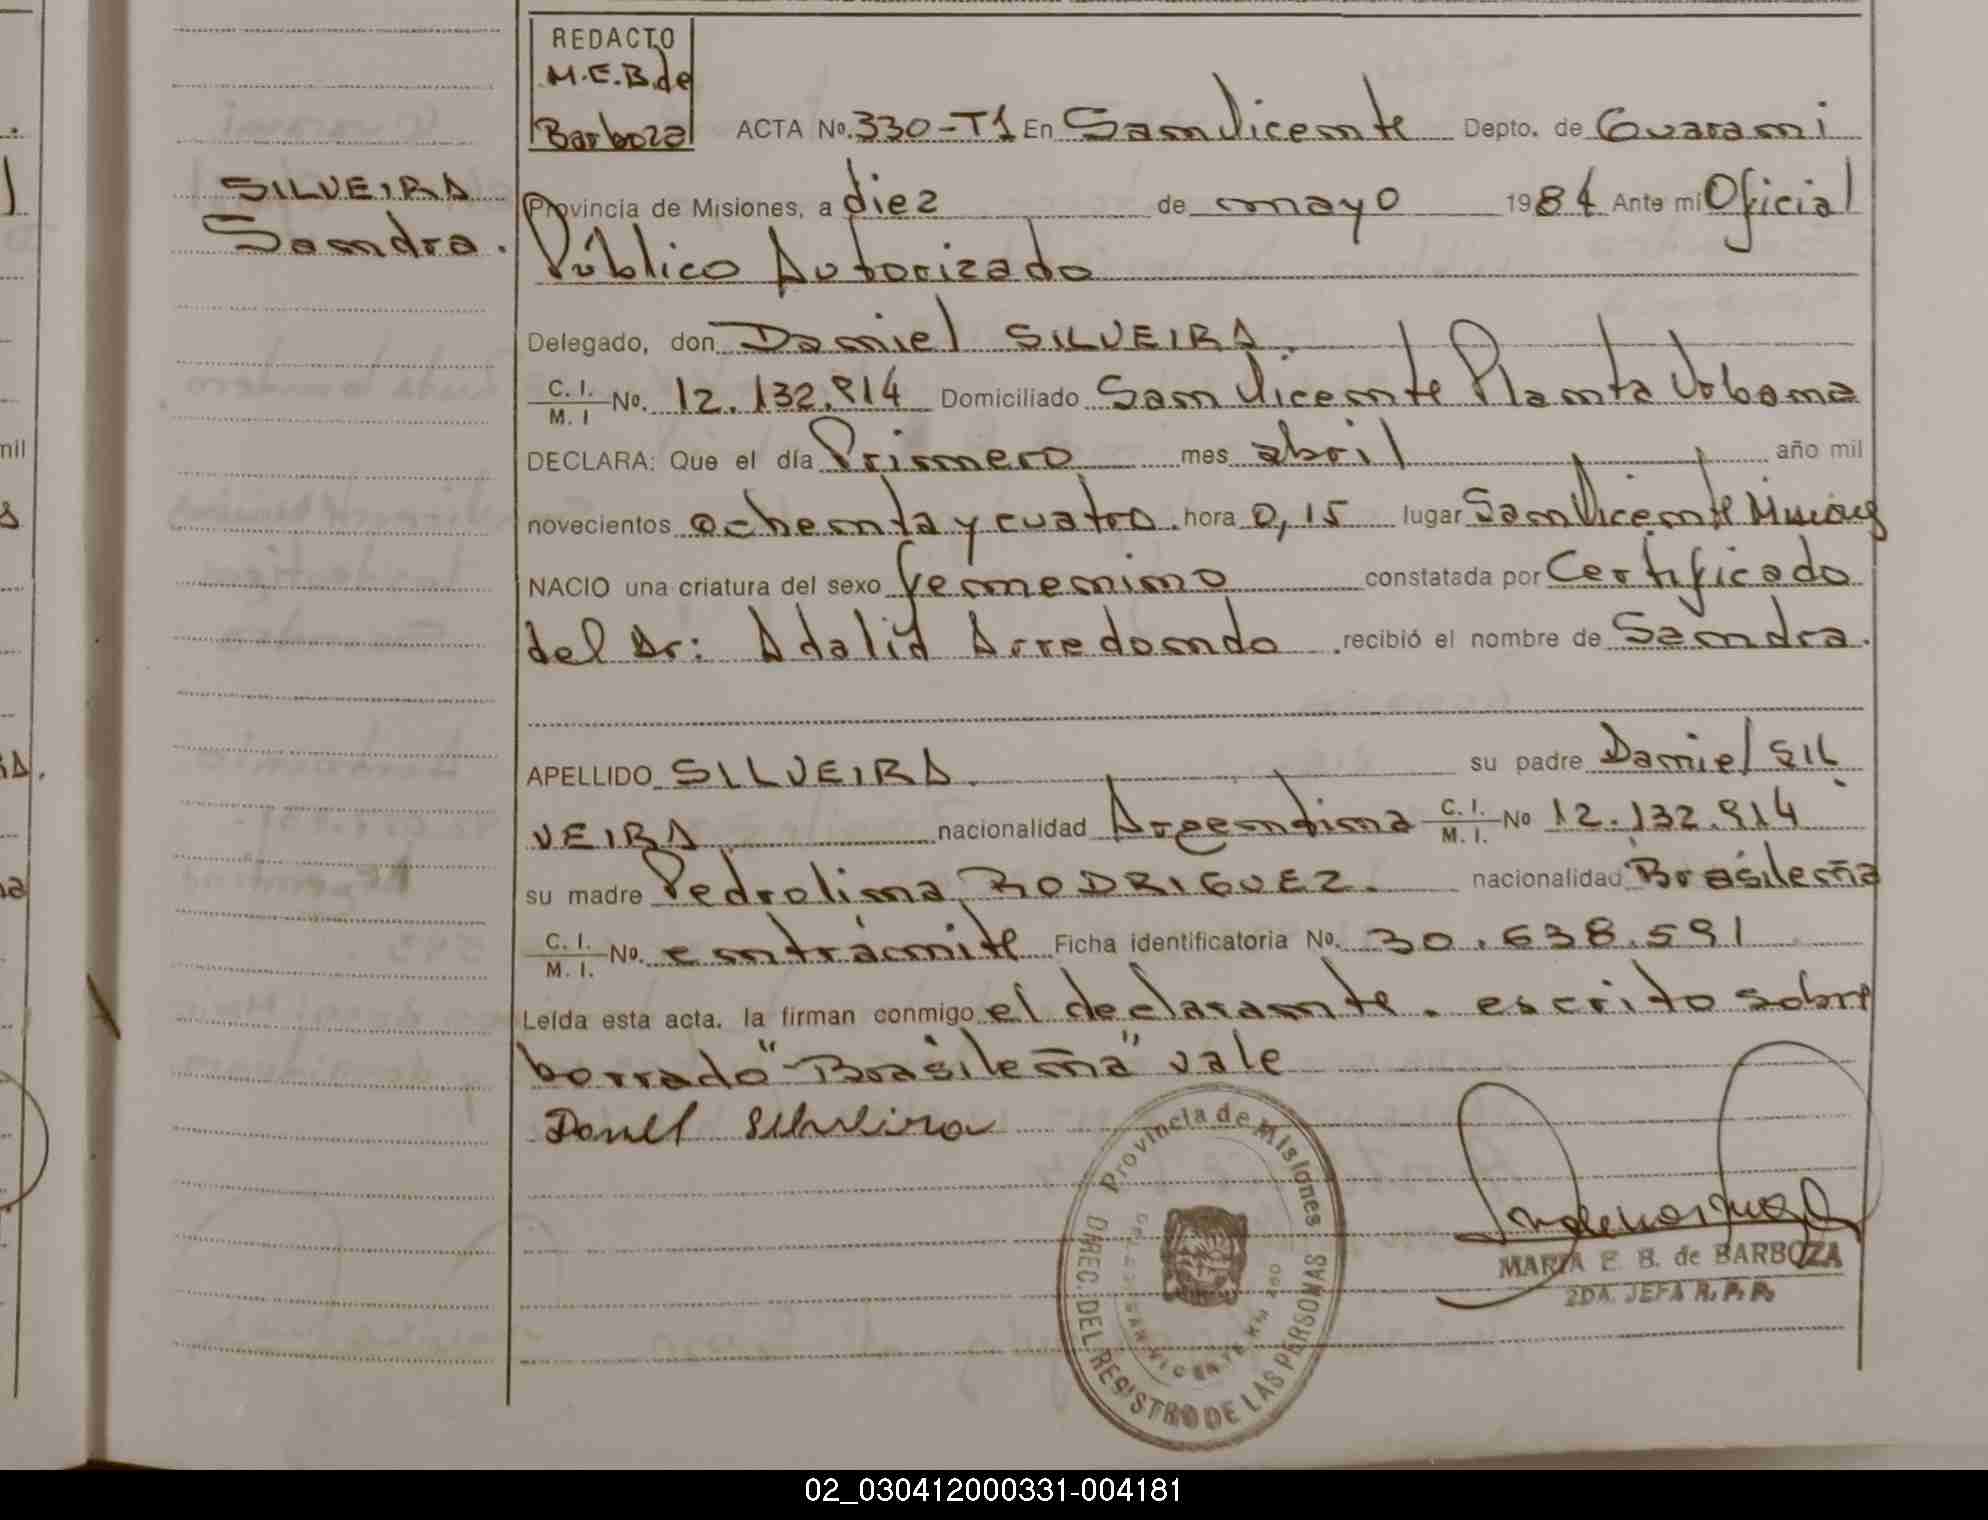 REDACTO
M.E.B.de
Barboza
ACTA No. 330-T1 En San Vicente Depto. de Guarani
SILVEIRA
Sandra.
Provincia de Misiones, a diez de mayo 1984 Ante mi Oficial
Público Autorizado
Delegado, don Daniel SILVEIRA.
C. I.
M. I No. 12.132.914 Domiciliado San Vicente Planta Urbana
DECLARA: Que el día Primero mes abril año mil
novecientos ochenta y cuatro. hora 0,15 lugar San Vicente Misiones
NACIO una criatura del sexo femenino constatada por Certificado
del Dr: Adalid Arredondo recibió el nombre de Sandra.
APELLIDO SILVEIRA. su padre Daniel SIL
VEIRA nacionalidad Argentina C. I. M. I. No 12.132.914
su madre Pedrolina RODRIGUEZ. nacionalidad Brasileña
C. I.
M. I. No. entrámite Ficha identificatoria No. 30.638.591
Leída esta acta. la firman conmigo el declarante. escrito sobre
borrado "Brasileña" vale
Daniel Silveira
Provincia de Misiones
DIREC. DEL REGISTRO DE LAS PERSONAS
SAN VICENTE
MARIA E. B. de BARBOZA
2DA. JEFA R.P.P.
02_030412000331-004181